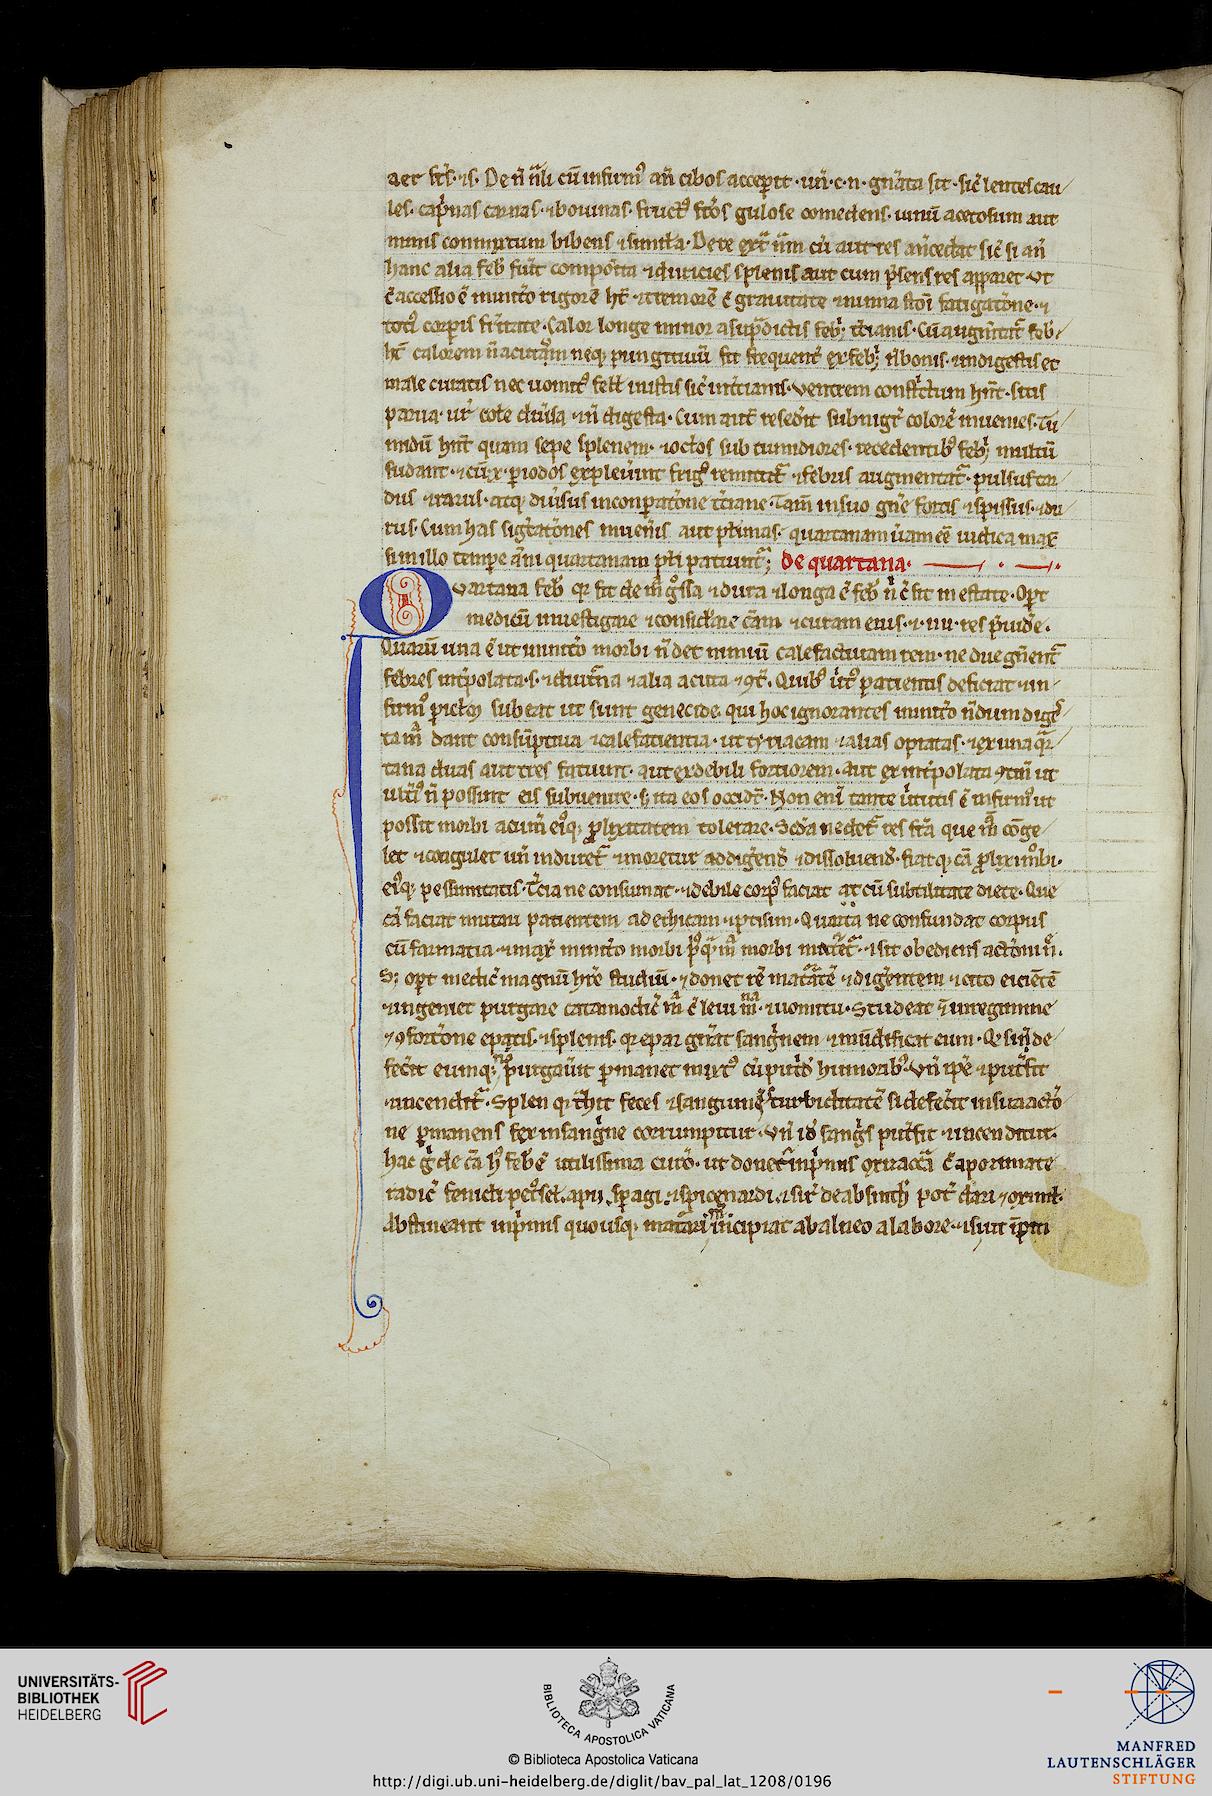 aer fri͛s · ⁊ s͛. De ñ nãli cũ infirm᷒ añ cibos acceperit · uñ · c · n · gñata sit · sic̃ lentes cau
les · cap̃nas carnas · ⁊ bouinas · fruct᷒ frõs gulose comedens · uinũ acetosum aut
nimis conmixtum bibens ⁊ similia · De re
hanc alia feb͛ fũit composita ⁊ duricies splenis aut cum p̃sens res apparet · ut
ẽ accessio ẽ initio rigorẽ ht̃ · ⁊ tremorẽ c̃ grauitate ⁊ nimia fatigatõne · ⁊
toti᷒ corpis fr͛itate · Calor longe minor a sup̃dictis feb͛ʒ t͛cianis · Cũ augm̃tat͛ feb͛
ht̃ calorem ñ acutũ neqʒ pungitiuũ fit frequent͛ ex feb͛ʒ ñ bonis · indigestis et
male curatis nec uomit᷒ fell mistis sic̃ in t͛cianis · uentrem const͛ctum hñt · sitis
parua · ur͛ cole diũsa · ⁊ ñ digesta · Cum aut̃ resedit subnigr͛ colorẽ inuenies · Tu
midũ hñt quam sepe splenem · ⁊ oclos sub tumidiores · recedentib᷒ feb͛ʒ multũ
sudant · ⁊ cũ · x · piodos expleũint frig᷒ remittit͛ ⁊ febris augmentat͛ · pulsus tar
dus ⁊ rarus · atqʒ diũsus in conparatõne t͛ciane · Tam̃ in suo gñe fortis ⁊ spissus · ⁊ du
rus · Cum has sigtatõnes inuenis aut plimas · quartanam ũam eẽ iudica max
sim illo tempe añi quartanam pl͛i patiunt͛ʒ De quartana ·
Quartana feb͛ qr fit de m͛ gossa ⁊ dura ⁊ longa ẽ feb͛ ñ c̃ fit in estate · Opt
medicũ inuestigare ⁊ consid͛are cãm ⁊ curam eius · ⁊ · iiii · res p̃uide͛ ·
Quarũ una ẽ ut initio morbi ñ det nimiũ calefactiuam rem · ne due gñent͛
febres int͛polata · s · ⁊ diut͛na ⁊ alia acuta ⁊ 9t͛ · Quib᷒ ũt᷒ patientis deficiat ⁊ in
firm᷒ piclo subeat ut sunt genecide · qui hoc ignorantes initio ñdum digest
ta m͛ dant consũptiua ⁊ calefacientia · ut tyriacam ⁊ alias opiatas · ⁊ ex una qr͛
tana duas aut tres faciunt · aut ex debili fortiorem · Aut ex int͛polata 9tiñ ut
ult͛i᷒ ñ possint eis subuenire · sʒ ita eos occid͛t · Non eni͛ tante ũtutis ẽ infirm᷒ ut
possit morbi acum̃ ei᷒qʒ plixitatem tolerare · Scda ne det͛ res fr͛a que m͛ cõge
let ⁊ coagulet uñ induret͛ ⁊ moretur ad digend͛ ⁊ dissoluend͛ · fiatqʒ cã plixi m͛bi ·
ei᷒qʒ pessimitatis · T͛cia ne consumat · ⁊ debile corp᷒ faciat at͛ cũ subtilitate diete · Que
cã faciat mutari patientem ad ethicam · ⁊ ptisim · Quarta ne confundat corpus
cũ farmacia · ⁊ max͛ initio morbi m͛ morbi mutet͛ · ⁊ sit obediens actõni
Sʒ opt medic͛ magnũ hre͛ studiũ · ⁊ donet rẽ mat͛atẽ ⁊ dig͛entem ⁊ cito eicietẽ
⁊ ingeniet purgare catamodic͛ m͛ c̃ leui ⁊ uomitu · Studeat ⁊ in regimine
⁊ 9fortõne epatis · ⁊ splenis · qr epar gñat sang͛nem ⁊ mũdificat eum · Qr si de
fec͛it eumqʒ purgaũit pmanet mixt᷒ cũ put͛d͛ humorib᷒ · Uñ ip̃e ⁊ put͛fit
⁊ incendit͛ · Splen qr t͛hit feces ⁊ sanguinẽ turbiditatẽ si defec͛it in sua actõ
ne pmanens fex in sang͛ne corrumpitur · Uñ id͛ sang͛s put͛fit ⁊ incenditur ·
hac g͛ de cã h᷒ feb͛ ẽ utilissima curõ · ut donet͛ in p͛mis oxizacc͛a c̃ apozimate
radic͛ feniculi pet᷒sel · apii · spagi · ⁊ spice nardi · ⁊ sir͛ de absinth͛ pot͛ dari ⁊ oximl ·
Abstineant inp͛mis quousqʒ incipiat a balneo a labore · ⁊ sint
UNIVERSITÄTS-
BIBLIOTHEK
HEIDELBERG
BIBLIOTECA APOSTOLICA VATICANA
© Biblioteca Apostolica Vaticana
http://digi.ub.uni-heidelberg.de/diglit/bav_pal_lat_1208/0196
MANFRED
LAUTENSCHLÄGER
STIFTUNG